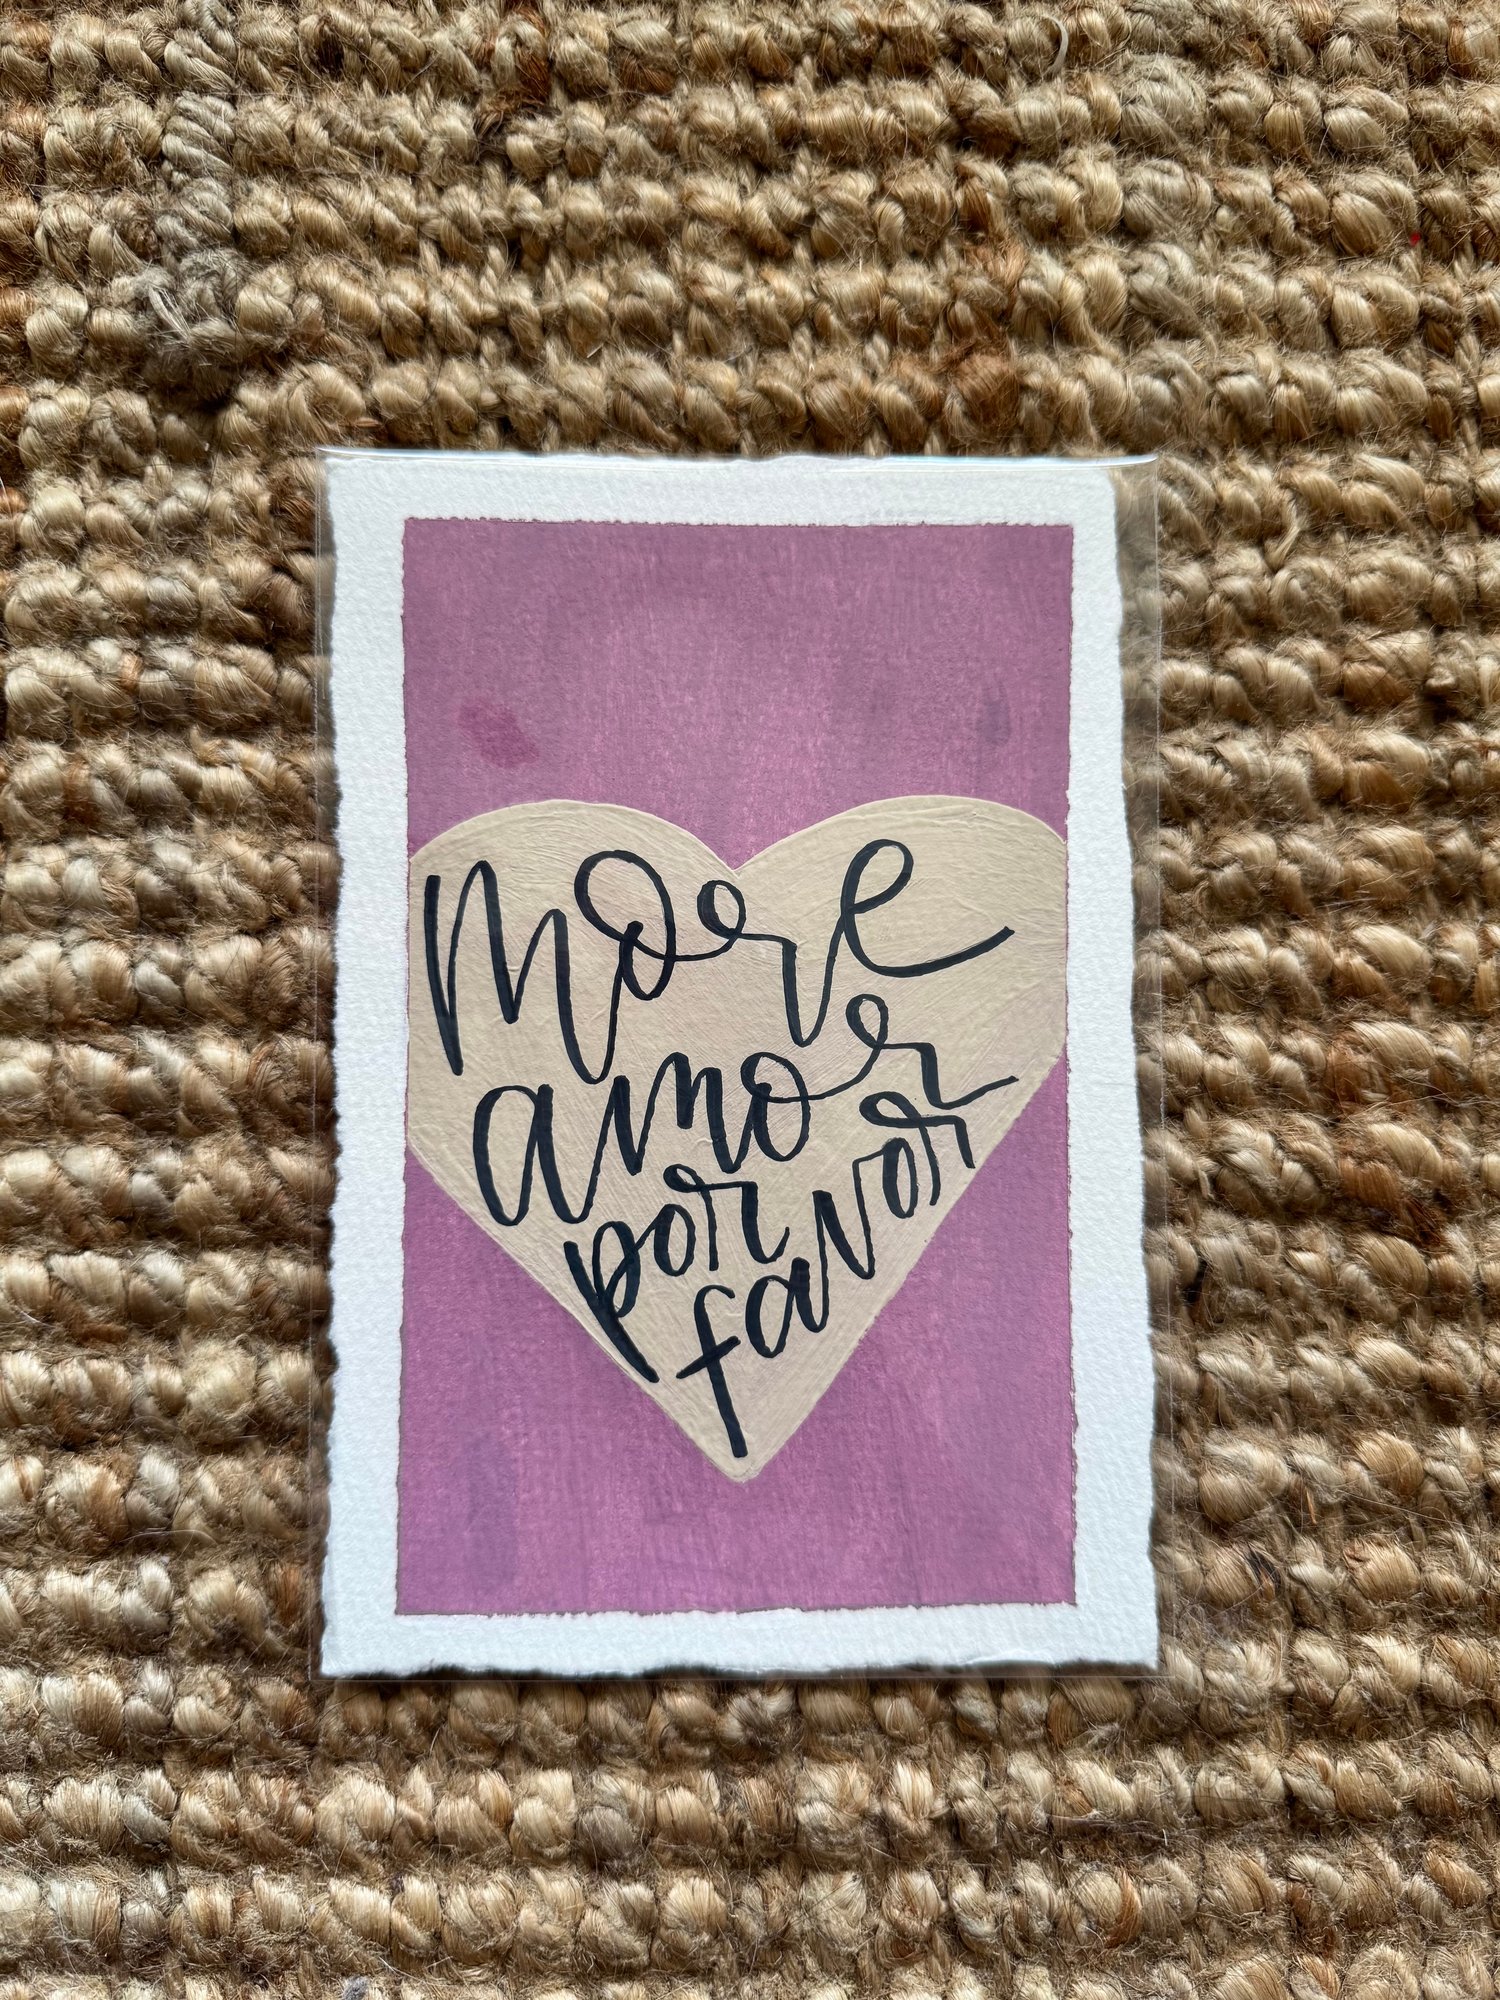 more
amor
por
favor